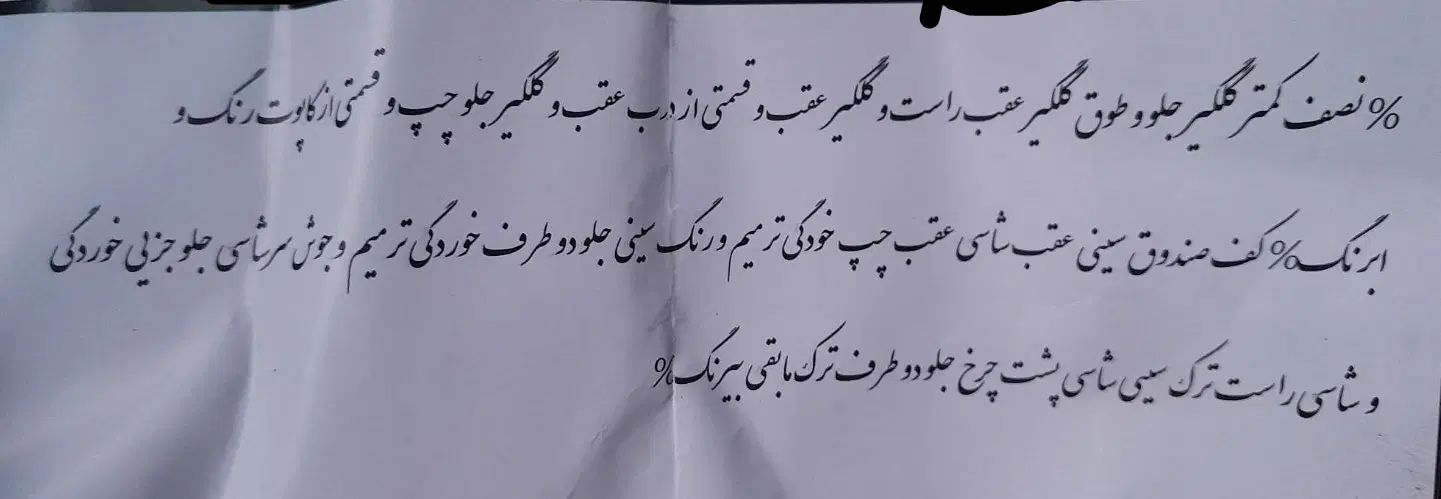 % نصف کمتر گلگیر جلو و طوق گلگیر عقب راست و گلگیر عقب و قسمتی از درب عقب و گلگیر جلو چپ و قسمتی از کاپوت رنگ و
ابرنگ% کف صندوق سینی عقب شاسی عقب چپ خودگی ترمیم و رنگ سینی جلو دو طرف خوردگی ترمیم و جوش سرشاسی جلو جزیی خوردگی
و شاسی راست ترک سیسی شاسی پشت چرخ جلو دو طرف ترک مابقی بیرنگ%